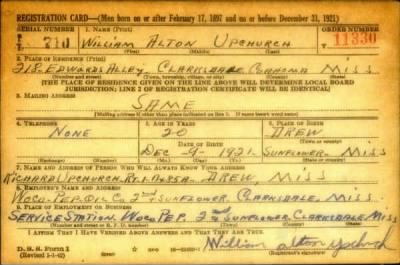 REGISTRATION CARD—(Men born on or after February 17, 1897 and on or before December 31, 1921)
SERIAL NUMBER 1. NAME (Print) ORDER NUMBER
710 WILLIAM ALTON UPCHURCH 11330
(First) (Middle) (Last)
2. PLACE OF RESIDENCE (Print)
218 EDWARDS ALLEY CLARKSDALE COAHOMA MISS
(Number and street) (Town, township, village, or city) (County) (State)
[THE PLACE OF RESIDENCE GIVEN ON THE LINE ABOVE WILL DETERMINE LOCAL BOARD
JURISDICTION; LINE 2 OF REGISTRATION CERTIFICATE WILL BE IDENTICAL]
3. MAILING ADDRESS
SAME
[Mailing address if other than place indicated on line 2. If same insert word same]
4. TELEPHONE 5. AGE IN YEARS 6. PLACE OF BIRTH
NONE 20 DREW
DATE OF BIRTH (Town or county)
DEC 9 1921 SUNFLOWER MISS
(Exchange) (Number) (Mo.) (Day) (Yr.) (State or country)
7. NAME AND ADDRESS OF PERSON WHO WILL ALWAYS KNOW YOUR ADDRESS
RICHARD UPCHURCH DREW, MISS
8. EMPLOYER'S NAME AND ADDRESS
WOCO-PEP OIL CO 2nd & SUNFLOWER CLARKSDALE, MISS
9. PLACE OF EMPLOYMENT OR BUSINESS
SERVICE STATION WOCO PEP. 2nd SUNFLOWER CLARKSDALE MISS
(Number and street or R. F. D. number) (Town) (County) (State)
I AFFIRM THAT I HAVE VERIFIED ABOVE ANSWERS AND THAT THEY ARE TRUE.
D. S. S. Form 1
(Revised 1-1-42) William Alton Upchurch